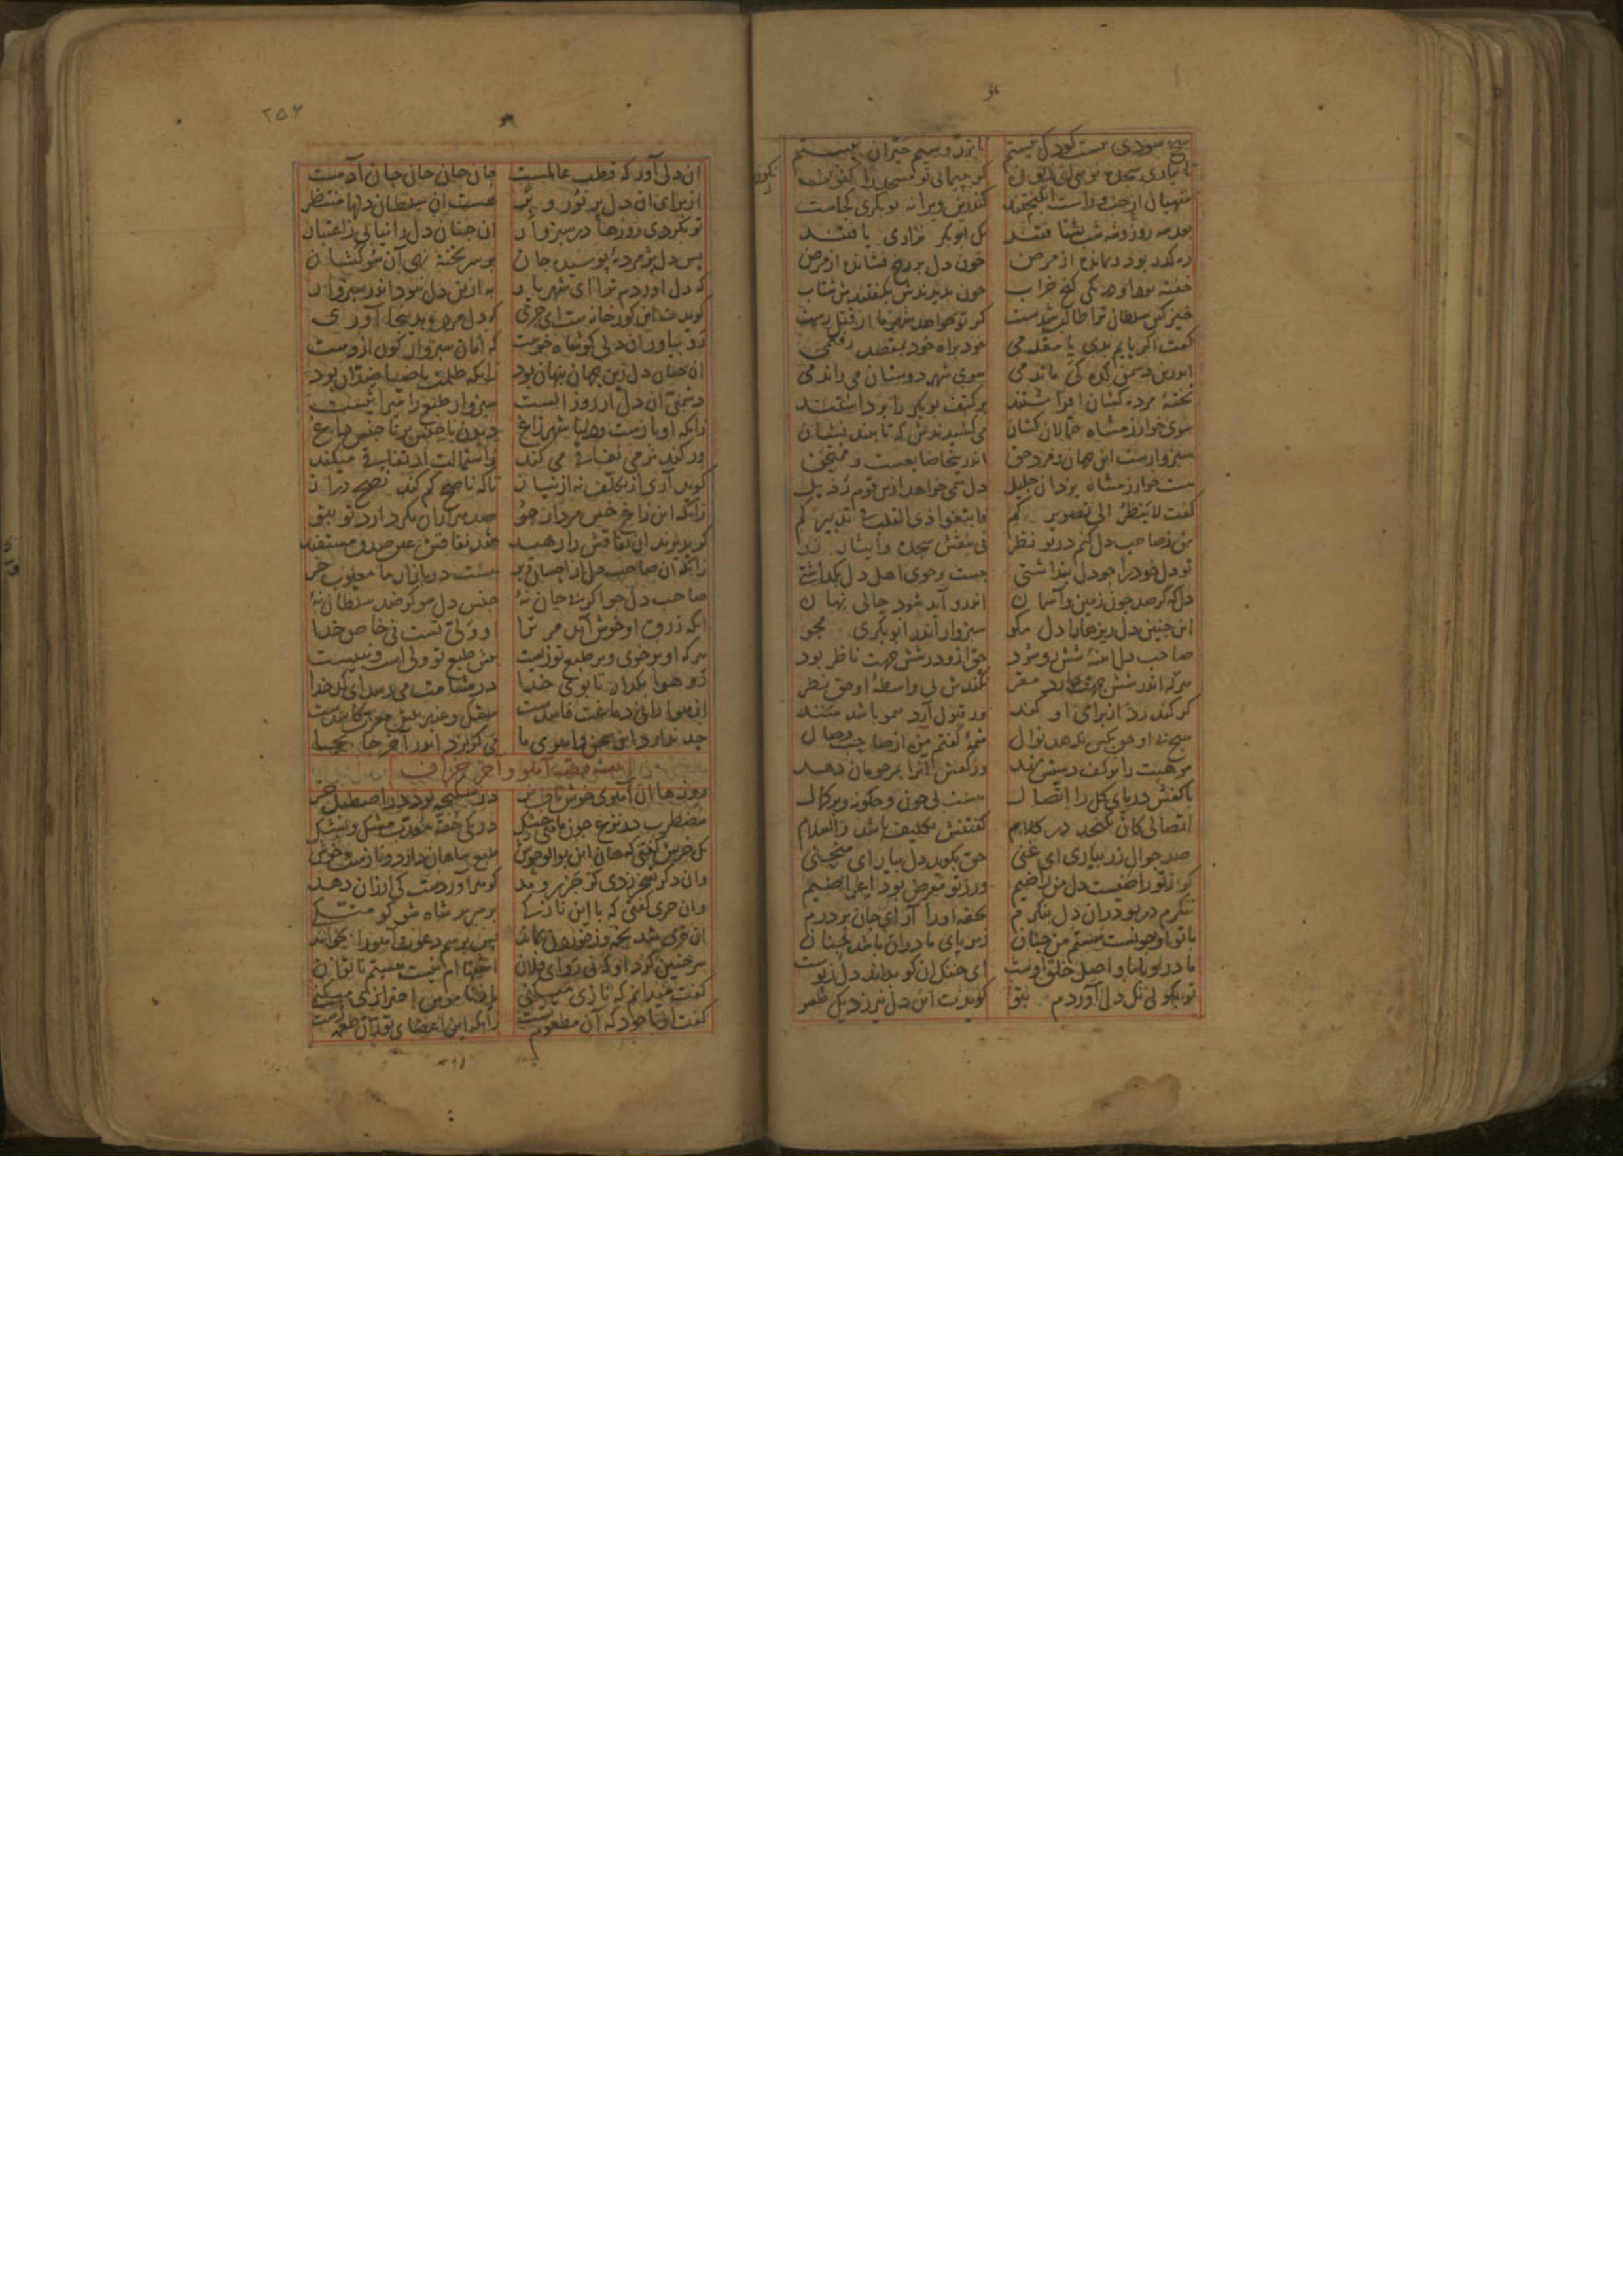 هیچ سودی نیست کودک نیستم
تا بزر و سیم حیران بیستم
تا نیاری سجده نرهی ای زبون
گر بپیمایی تو مسجد را بکون
منهیان از چپ و راست انگیختند
کندرین ویرانه بوبکری کجاست
بعد سه روز و سه شب بشتافتند
یک ابوبکر نزاری یافتند
ره گذر بود و بمانده از مرض
خون دل بر رخ فشانده از مرض
خفته بود او در یکی کنج خراب
چون بدیدندش بگفتندش شتاب
خیز کین سلطان ترا طالب شدست
کز تو خواهد شهر ما از قتل رست
گفت اگر پایم بدی یا مقدمی
خود براه خود بمقصد رفتمی
اندرین دشمن کده کی ماندمی
سوی شهر دوستان می راندمی
تخته مرده کشان افراشتند
بر کتف بوبکر را برداشتند
سوی خوارزمشاه حمالان کشان
می کشیدندش که تا بیند نشان
سبزوارست این جهان و مرد حق
اندرینجا ضایعست و ممتحق
هست خوارزمشاه یزدان جلیل
دل همی خواهد ازین قوم رذیل
گفت لا ینظر الی تصویرکم
فابتغوا ذی القلب فی تدبیرکم
من ز صاحب دل کنم در تو نظر
نی بنقش سجده و ایثار زر
تو دل خود را چو دل پنداشتی
جست و جوی اهل دل بگذاشتی
دل که گر صد چون زمین و آسمان
اندرو آید شود خالی نهان
این چنین دل ریزهارا دل مگو
سبزوار اندر ابوبکری مجو
صاحب دل آینه شش رو شود
حق ازو در شش جهت ناظر بود
هر که اندر شش جهت دارد مقر
نکندش بی واسطه او حق نظر
گر کند رد از برای او کند
ور قبول آرد همو باشد سند
هیچ بی او حق بکس ندهد نوال
شمه گفتم من از صاحب وصال
موهبت را بر کف دستش نهد
وز کفش آنرا بمرحومان دهد
با کفش دریای کل را اتصال
هست بی چون و چگونه و بر کمال
اتصالی کان نگنجد در کلام
گفتنش تکلیف باشد والسلام
صد جوال زر بیاری ای غنی
حق بگوید دل بیار ای منحنی
گر ز تو راضیست دل من راضیم
ور ز تو معرض بود اعراضیم
ننگرم در تو در آن دل بنگرم
تحفه او را آر ای جان بر درم
با تو او چونست هستم من چنان
زیر پای مادران باشد جنان
مادر و بابا و اصل خلق اوست
ای خنک آن کو بداند دل ز پوست
تو بگویی نک دل آوردم بتو
گویدت این دل نیرزد یک طسو
۲۵۶
آن دلی آور که قطب عالمست
جان جان جان جان آدمست
از برای آن دل پر نور و بر
هست آن سلطان دلها منتظر
تو بگردی روزها در سبزوار
آن چنان دل را نیابی ز اعتبار
پس دل پژمرده پوسیده جان
بر سر تخته نهی آن سو کشان
که دل آوردم ترا ای شهریار
به ازین دل نبود اندر سبزوار
گویدت این گورخانه ست ای جری
که دل مرده بدینجا آوری
رو بیاور آن دلی کو شاه خوست
که امان سبزوار کون ازوست
آن چنان دل زین جهان پنهان بود
زانکه ظلمت با ضیا ضدان بود
دشمنی آن دل از روز الست
سبزوار طبع را میراثیست
زانکه او بازست و دنیا شهر زاغ
دیدن ناجنس بر ناجنس داغ
ور کند نرمی نفاقی می کند
ز استمالت ارتفاقی میکند
گوید آری از تکلف نه از نیاز
تا که ناصح کم کند نصح دراز
زانکه این زاغ خس مردار جو
صد هزاران مکر دارد تو بتو
گر پذیرند آن نفاقش را رهید
شد نفاقش عین صدق مستفید
زانکه آن صاحب دل با کر و فر
هست در بازار ما معیوب خر
صاحب دل جو اگر بیجان نه
جنس دل شو گر ضد سلطان نه
آنکه زرق او خوش آید مر ترا
او ولی تست نی خاص خدا
هر که او بر خوی و بر طبع تو زیست
پیش طبع تو ولی است و نبیست
رو هوا بگذار تا بوی خدا
در مشامت می رسد ای کدخدا
از هوا رانی دماغت فاسدست
مشک و عنبر پیش مغزت کاسدست
حد ندارد این سخن و آهوی ما
می گریزد اندر آخر جا بجا
بقیه قصه آهو و آخر خران
روزها آن آهوی خوش ناف نر
در شکنجه بود در اصطبل خر
مضطرب در نزع چون ماهی ز خشک
در یکی حقه معذب پشک و مشک
یک خرش گفتی که هان این بوالوحوش
طبع شاهان دارد و نازست و خوش
وان دگر تسخر زدی کز جزر و مد
گوهر آوردست کی ارزان دهد
وان خری گفتی که با این نازکی
بر سریر شاه شو گو متکی
آن خری شد تخمه وز خوردن بماند
پس برسم دعوت آهو را بخواند
سر چنین کرد او که نی رو ای فلان
اشتهاام نیست هستم ناتوان
گفت میدانم که نازی میکنی
یا ز ناموس احترازی میکنی
گفت او با خود که آن مطعوم تست
زانکه این اعضای تو زان طعمه رست